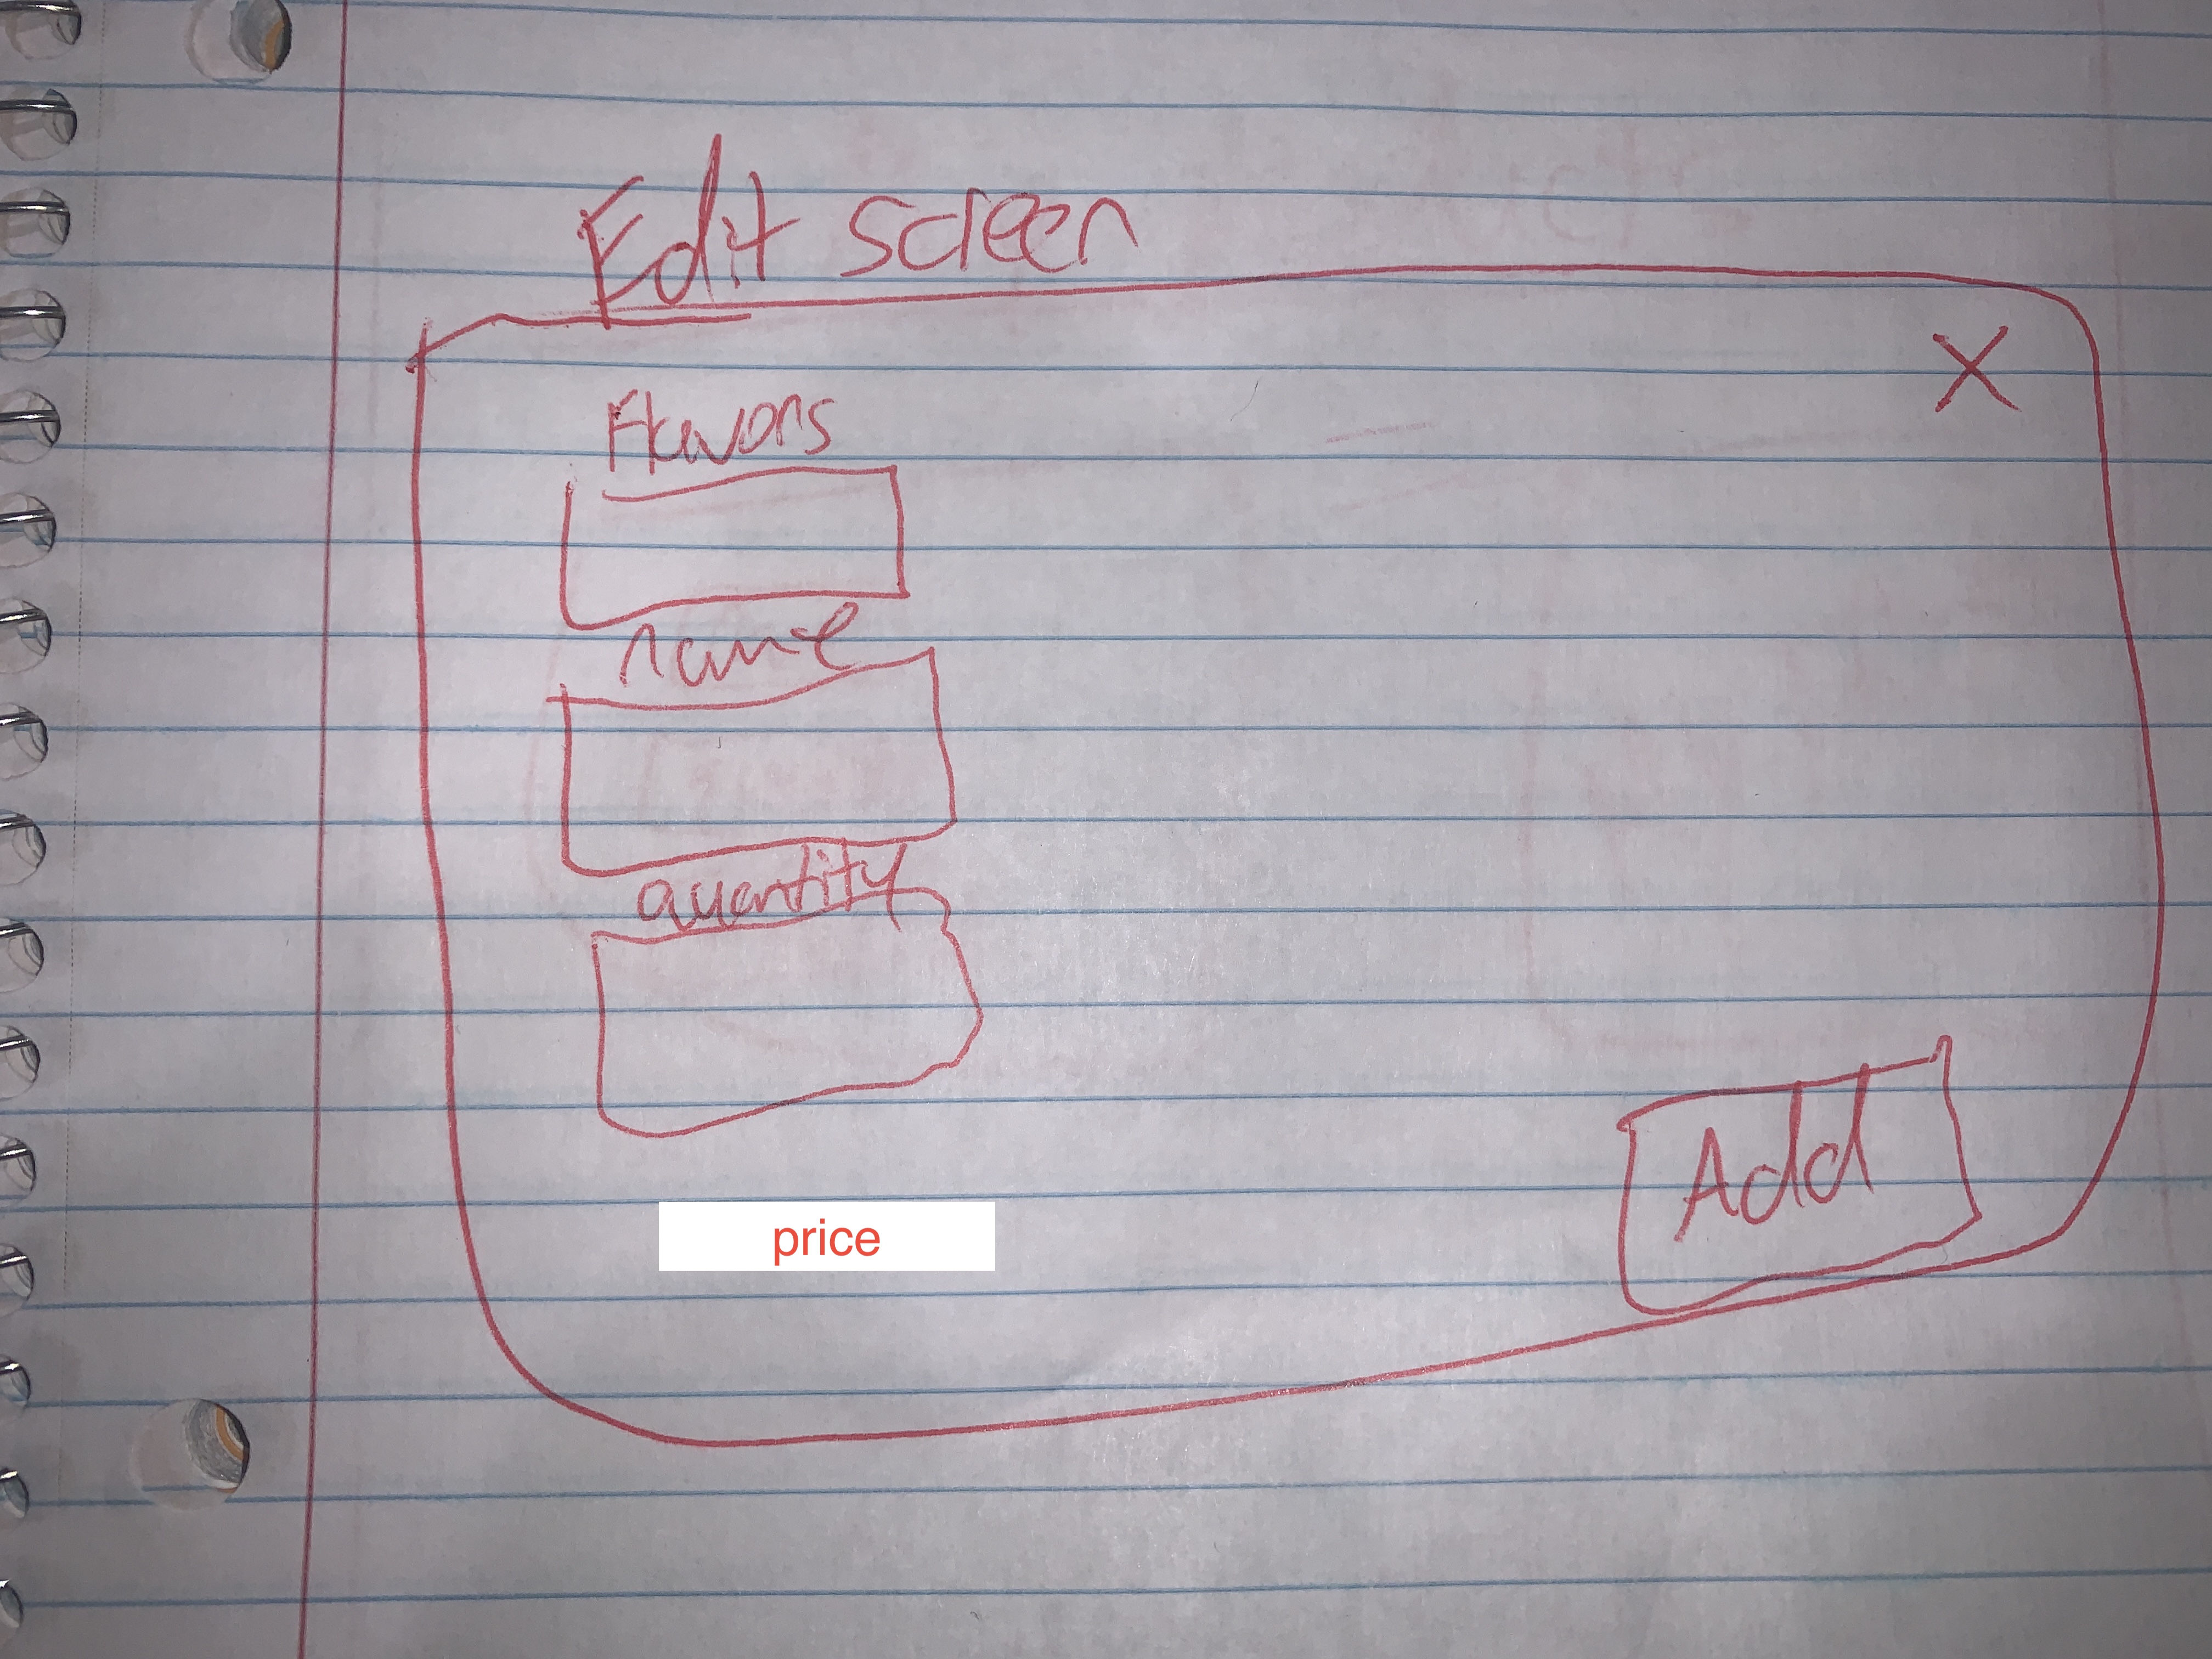 Edit screen
X
Flavors
name
quantity
Add
price